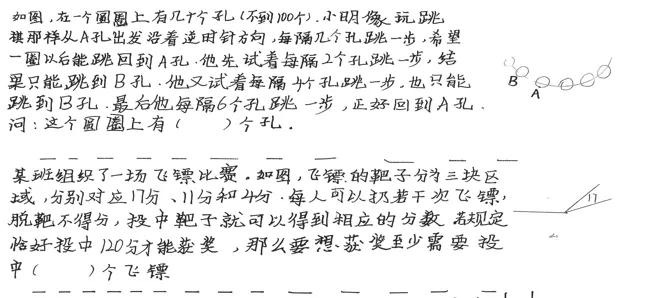 如图,在一个圆圈上有几十个孔(不到100个).小明像玩跳
棋那样从A孔出发沿着逆时针方向,每隔几个孔跳一步,希望
一圈以后能跳回到A孔.他先试着每隔2个孔跳一步,结
果只能跳到B孔.他又试着每隔4个孔跳一步,也只能
跳到B孔.最后他每隔6个孔跳一步,正好回到A孔.
问:这个圆圈上有( )个孔.
B A
某班组织了一场飞镖比赛.如图,飞镖的靶子分为三块区
域,分别对应17分、11分和4分.每人可以扔若干次飞镖,
脱靶不得分,投中靶子就可以得到相应的分数.若规定
恰好投中120分才能获奖,那么要想获奖至少需要投
中( )个飞镖
17